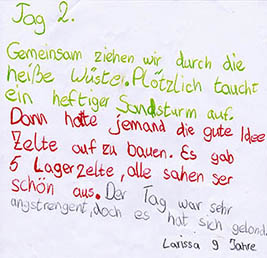 Tag 2.
Gemeinsam ziehen wir durch die
heiße Wüste. Plötzlich taucht
ein heftiger Sandsturm auf.
Dann hatte jemand die gute Idee
Zelte auf zu bauen. Es gab
5 Lagerzelte, alle sahen ser
schön aus. Der Tag war sehr
angstrengent, doch es hat sich gelond.
Larissa 9 Jahre